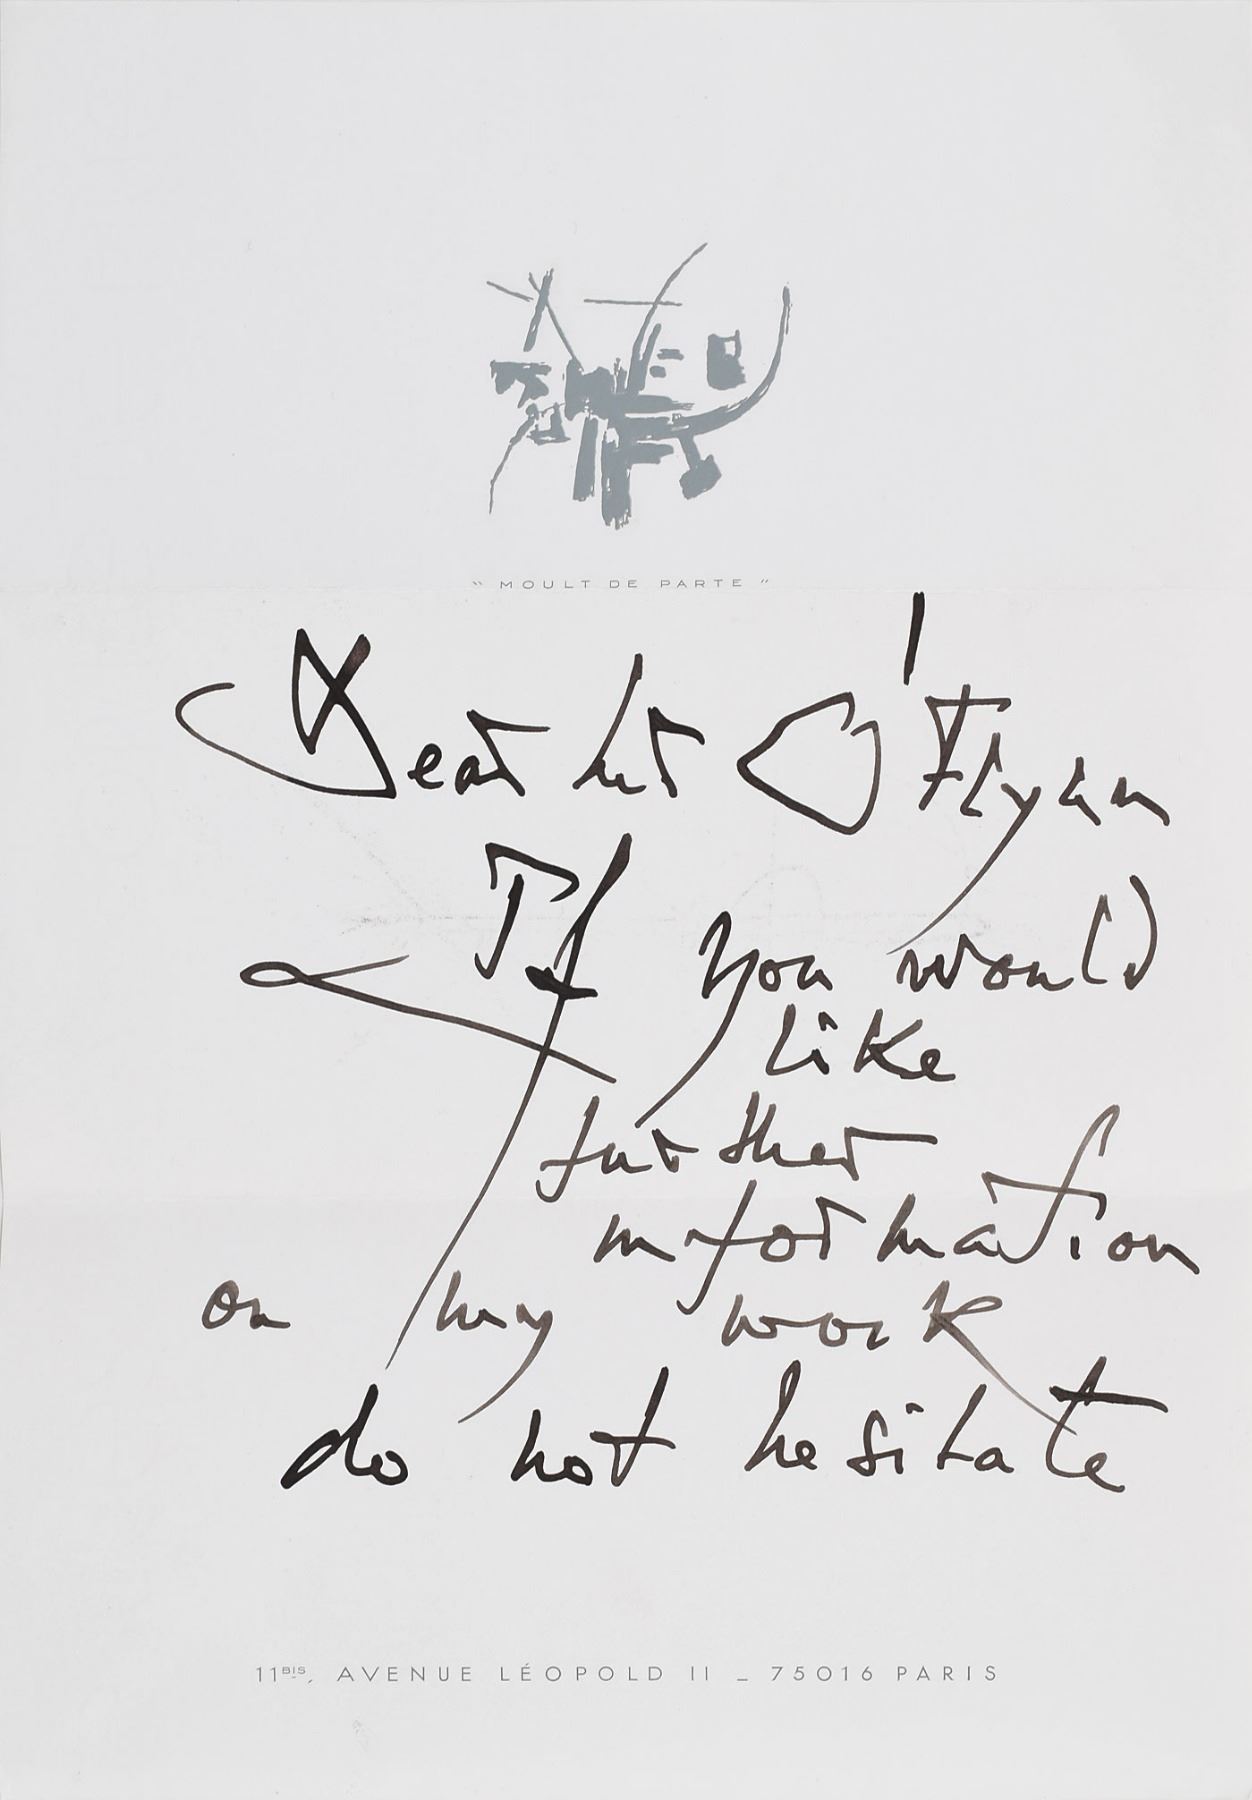 " MOULT DE PARTE "
Dear Mr O'Flynn
If you would
like
further
information
on my work
do not hesitate
11BIS, AVENUE LÉOPOLD II _ 75016 PARIS